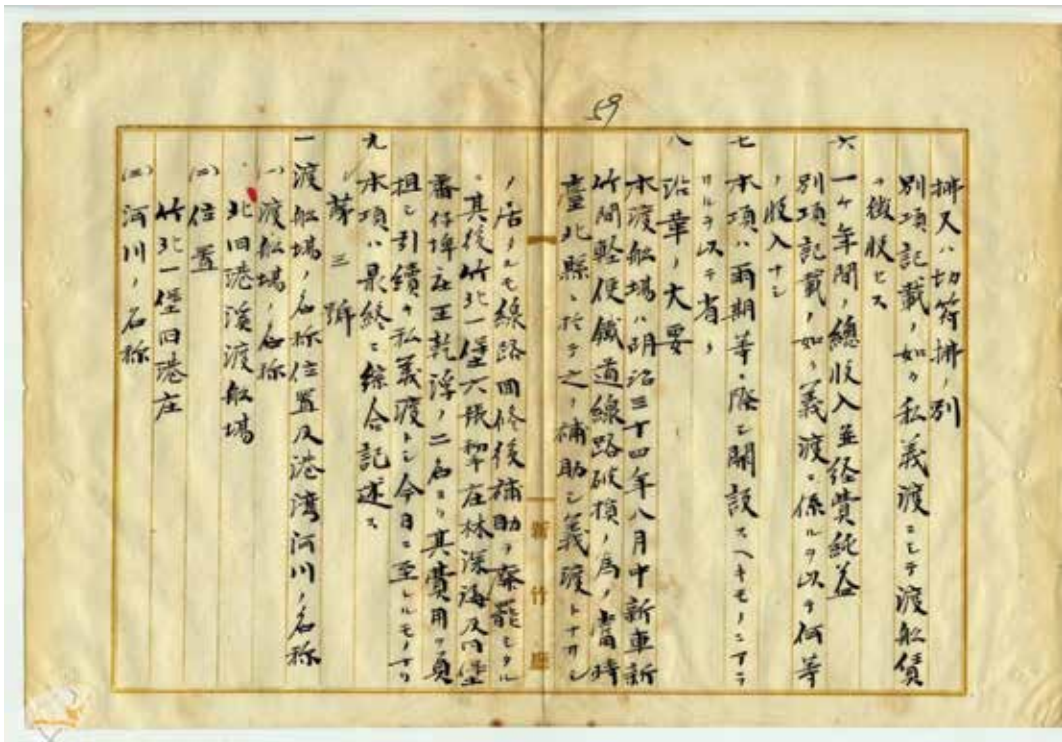 59
拂又ハ切符拂ノ別
別項記載ノ如ク私義渡ニシテ渡船賃
ヲ徴收セス
六 一ヶ年間ノ總收入並経費純益
別項記載ノ如ク義渡ニ係ルヲ以テ何等
ノ收入ナシ
七 本項ハ雨期等ノ際ニ開設スヘキモノニアラ
サルヲ以テ省ク
八 沿革ノ大要
本渡船場ハ明治三十四年八月中新車新
竹間軽便鐵道線路破損ノ為ノ當時
臺北縣ニ於テ之ヲ補助シ義渡トナサレ
ノ居タルモ線路回修後補助ヲ棄罷セラル
其後竹北一堡六張犂庄林深海及同堡
番仔埤庄王乾淳ノ二名ヨリ其費用ヲ負
担シ引續キ私義渡トシ今日ニ至レルモノナリ
九 本項ハ最終ニ綜合記述ス
第三號
一 渡船場ノ名称位置及港湾河川ノ名称
(一) 渡船場ノ名称
北旧港渓渡船場
(二) 位置
竹北一堡旧港庄
(三) 河川ノ名称
新竹廳